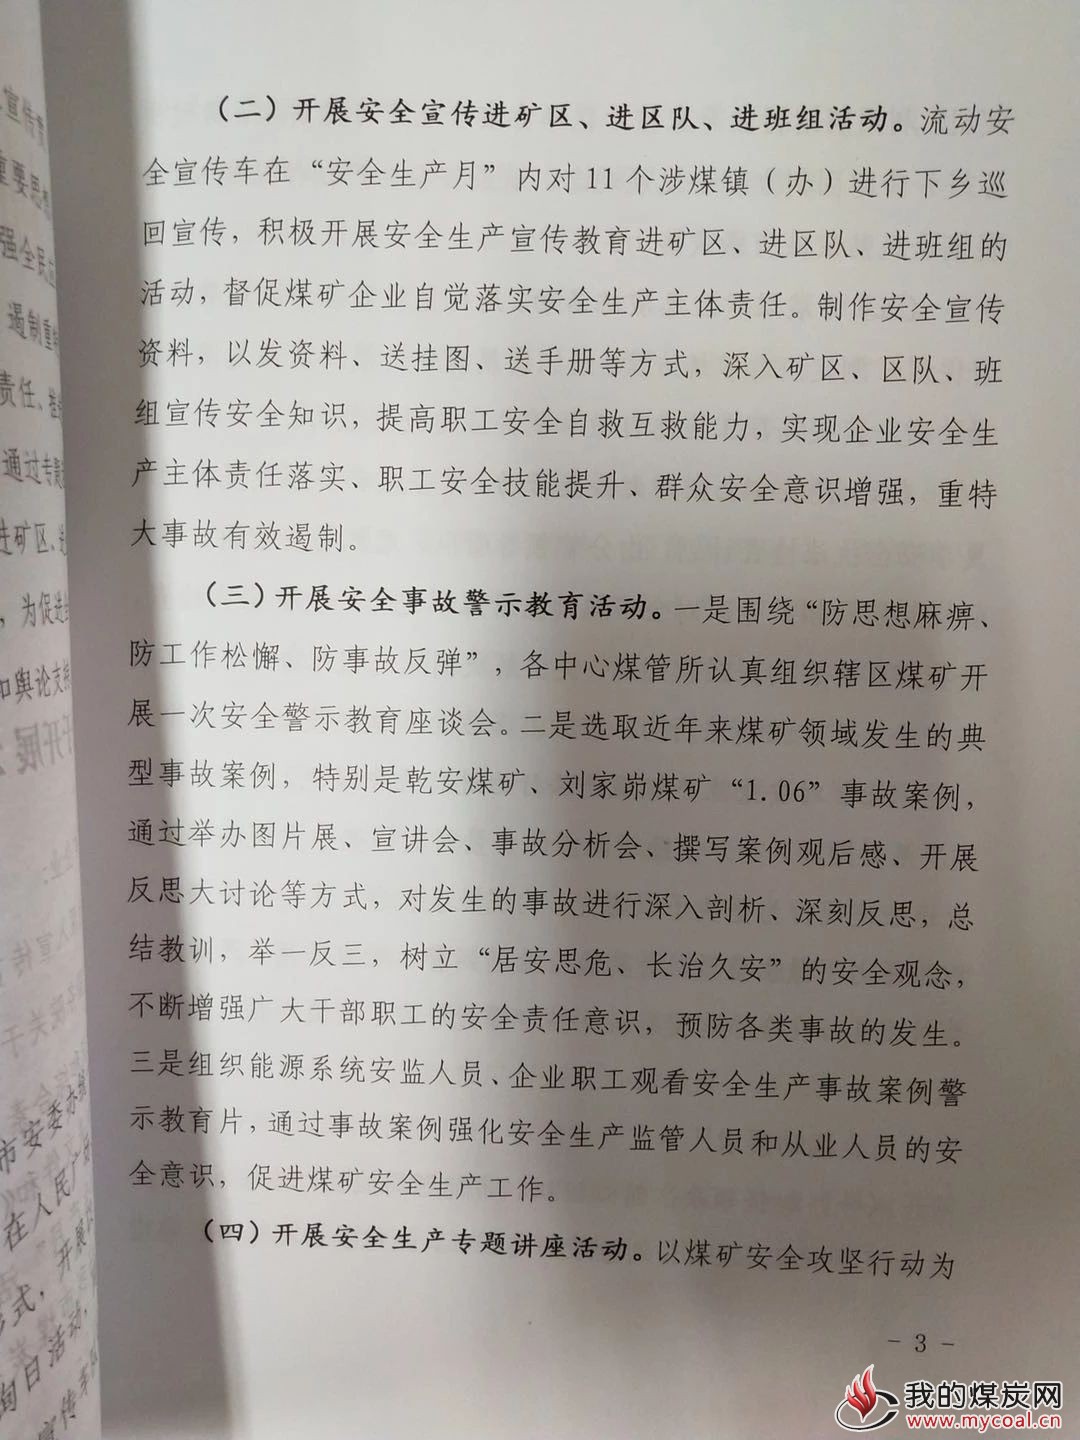 （二）开展安全宣传进矿区、进区队、进班组活动。流动安
全宣传车在“安全生产月”内对11个涉煤镇（办）进行下乡巡
回宣传，积极开展安全生产宣传教育进矿区、进区队、进班组的
活动，督促煤矿企业自觉落实安全生产主体责任。制作安全宣传
资料，以发资料、送挂图、送手册等方式，深入矿区、区队、班
组宣传安全知识，提高职工安全自救互救能力，实现企业安全生
产主体责任落实、职工安全技能提升、群众安全意识增强，重特
大事故有效遏制。
（三）开展安全事故警示教育活动。一是围绕“防思想麻痹、
防工作松懈、防事故反弹”，各中心煤管所认真组织辖区煤矿开
展一次安全警示教育座谈会。二是选取近年来煤矿领域发生的典
型事故案例，特别是乾安煤矿、刘家峁煤矿“1.06”事故案例，
通过举办图片展、宣讲会、事故分析会、撰写案例观后感、开展
反思大讨论等方式，对发生的事故进行深入剖析、深刻反思，总
结教训，举一反三，树立“居安思危、长治久安”的安全观念，
不断增强广大干部职工的安全责任意识，预防各类事故的发生。
三是组织能源系统安监人员、企业职工观看安全生产事故案例警
示教育片，通过事故案例强化安全生产监管人员和从业人员的安
全意识，促进煤矿安全生产工作。
（四）开展安全生产专题讲座活动。以煤矿安全攻坚行动为
- 3 -
宣传
重要思想
强全民
遏制重
责任、
通过专题
进矿区、
，为促进
和舆论支
开展
市安委办
在人民广
形式，开展
旬日活动，
宣传
我的煤炭网
www.mycoal.cn